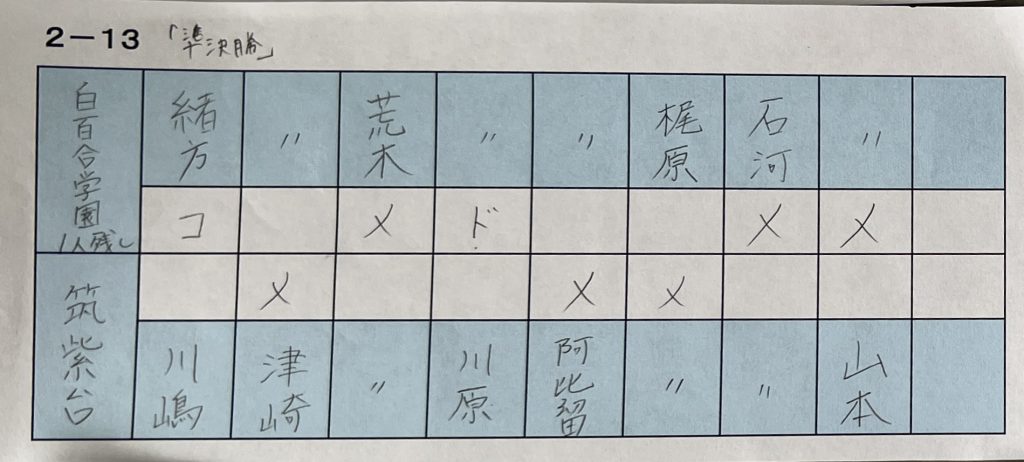 2－13 「準決勝」
白百合学園 1人残し 緒方 〃 荒木 〃 〃 梶原 石河 〃
コ メ ド メ メ
メ メ メ
筑紫台 川嶋 津崎 〃 川原 阿比留 〃 〃 山本